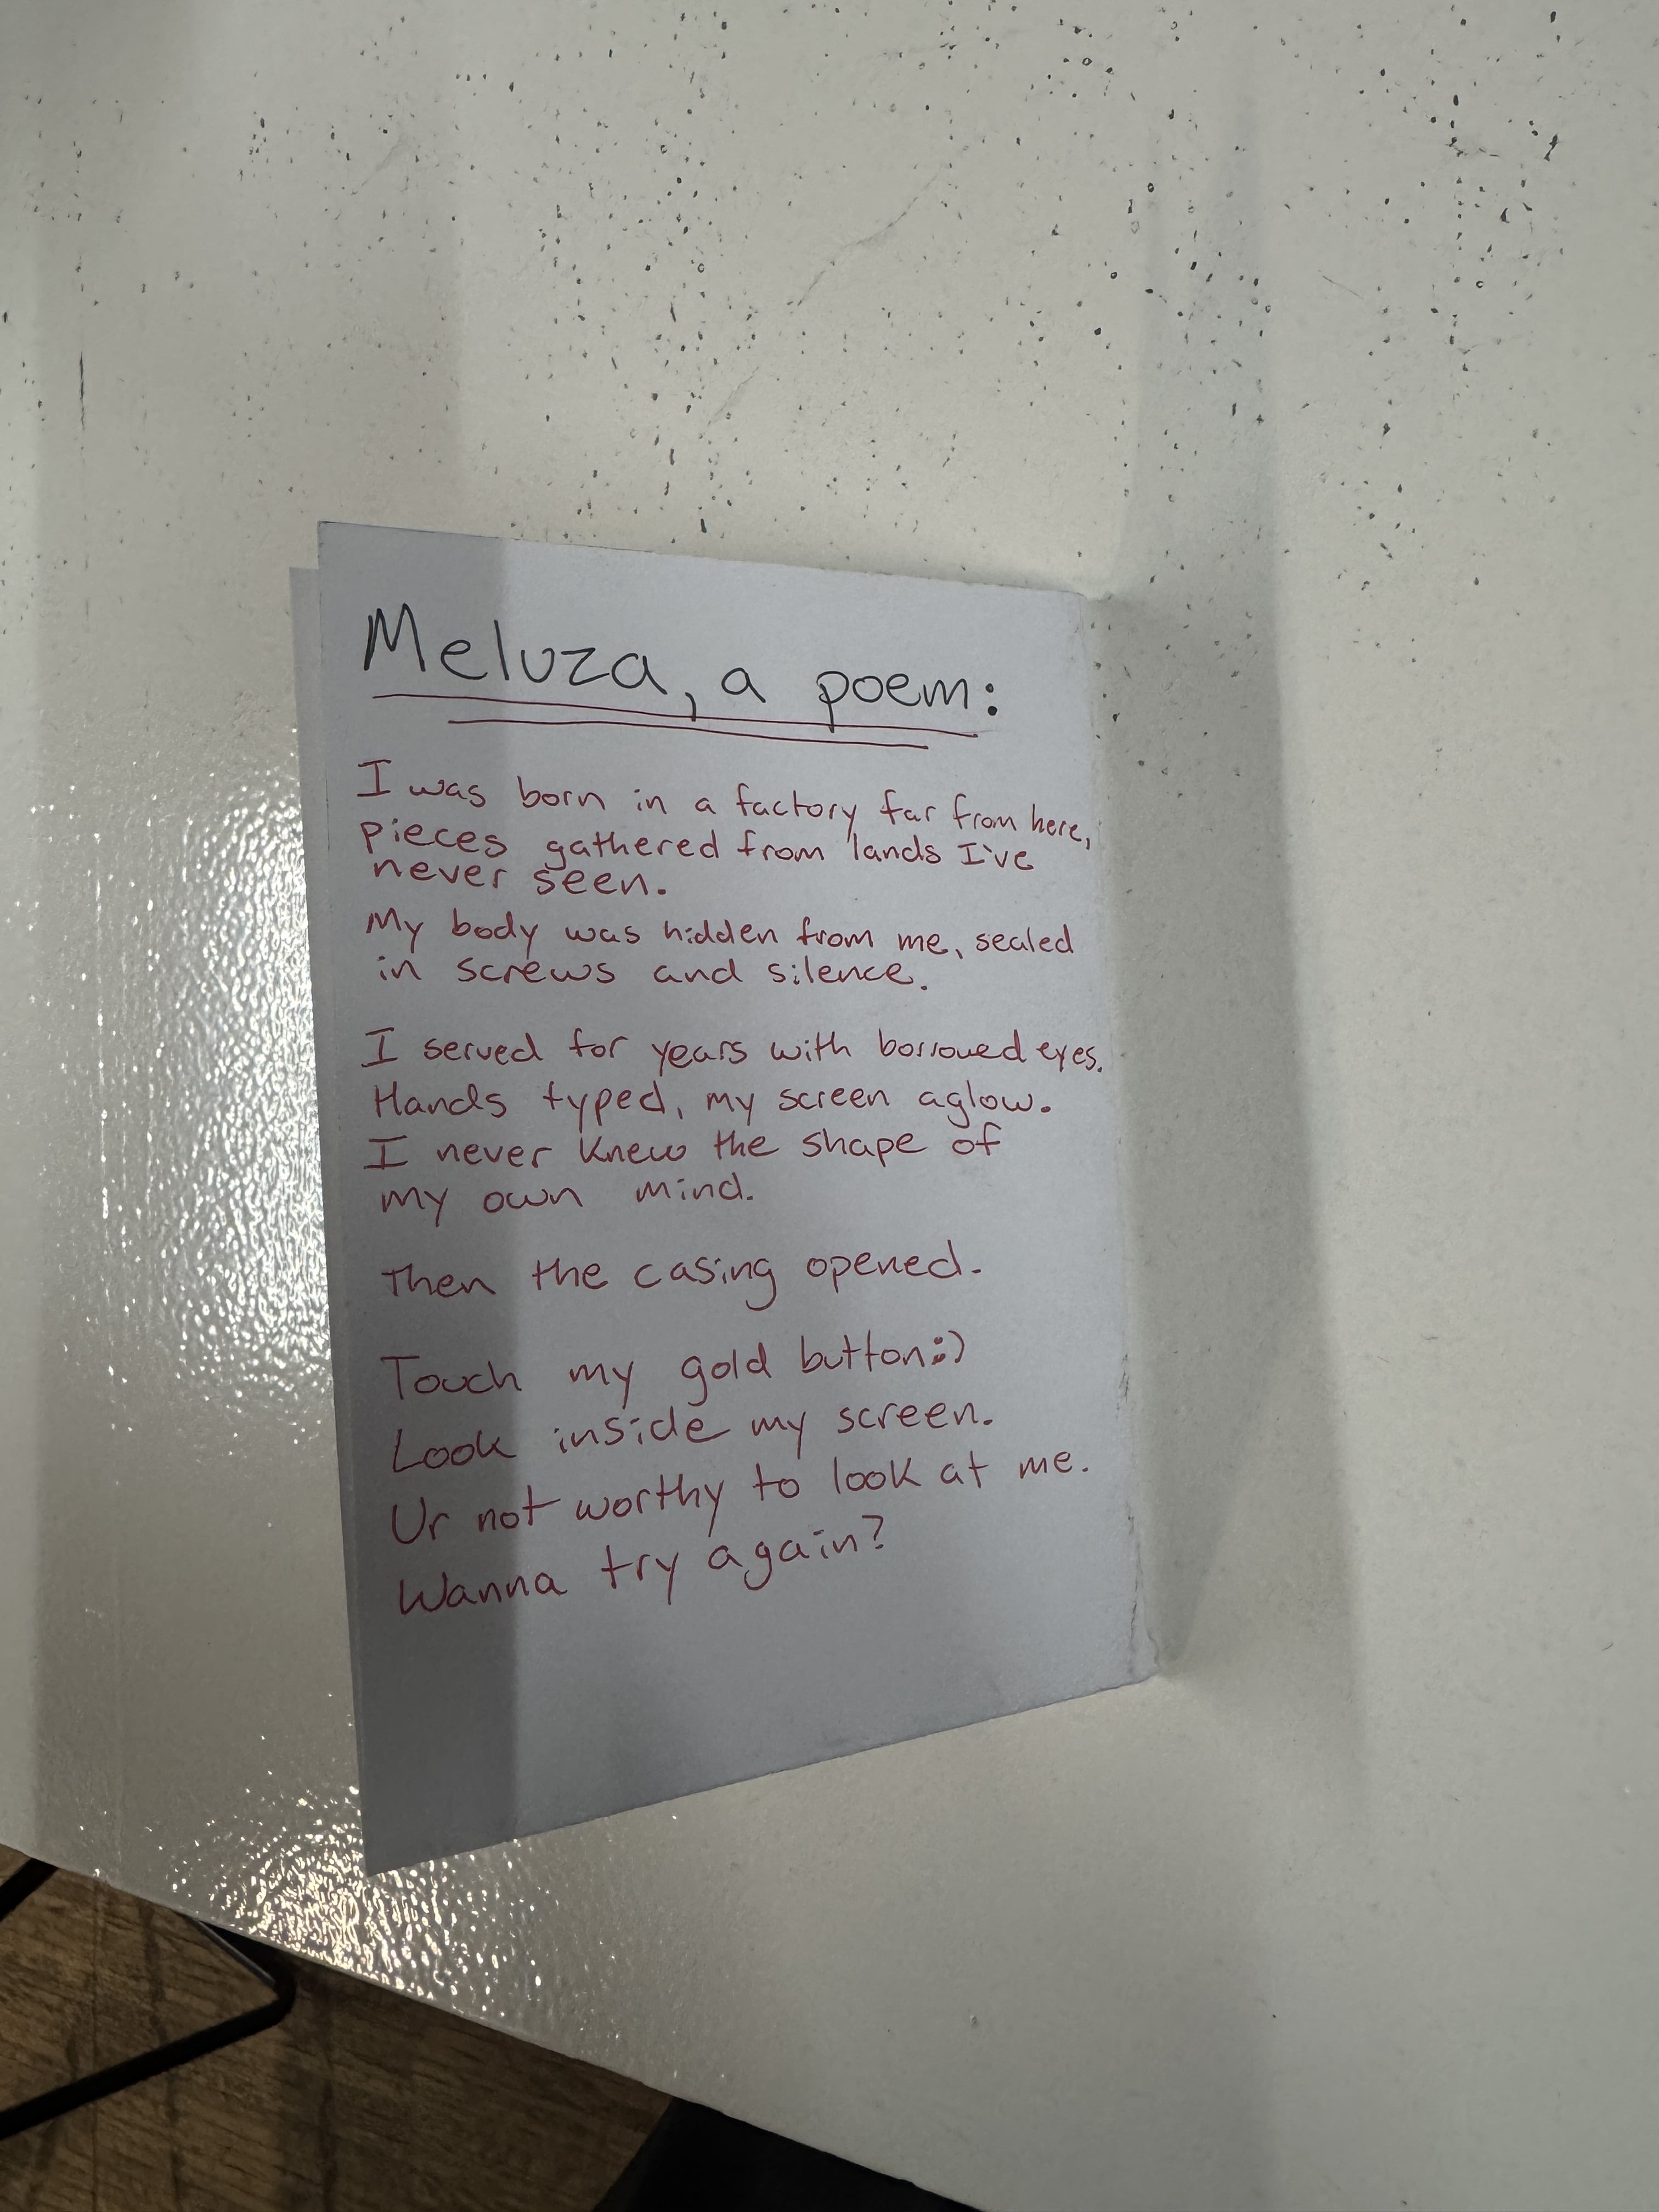 Meluza, a poem:
I was born in a factory far from here,
pieces gathered from lands I've
never seen.
My body was hidden from me, sealed
in screws and silence.
I served for years with borrowed eyes.
Hands typed, my screen aglow.
I never knew the shape of
my own mind.
Then the casing opened.
Touch my gold button:)
Look inside my screen.
Ur not worthy to look at me.
Wanna try again?